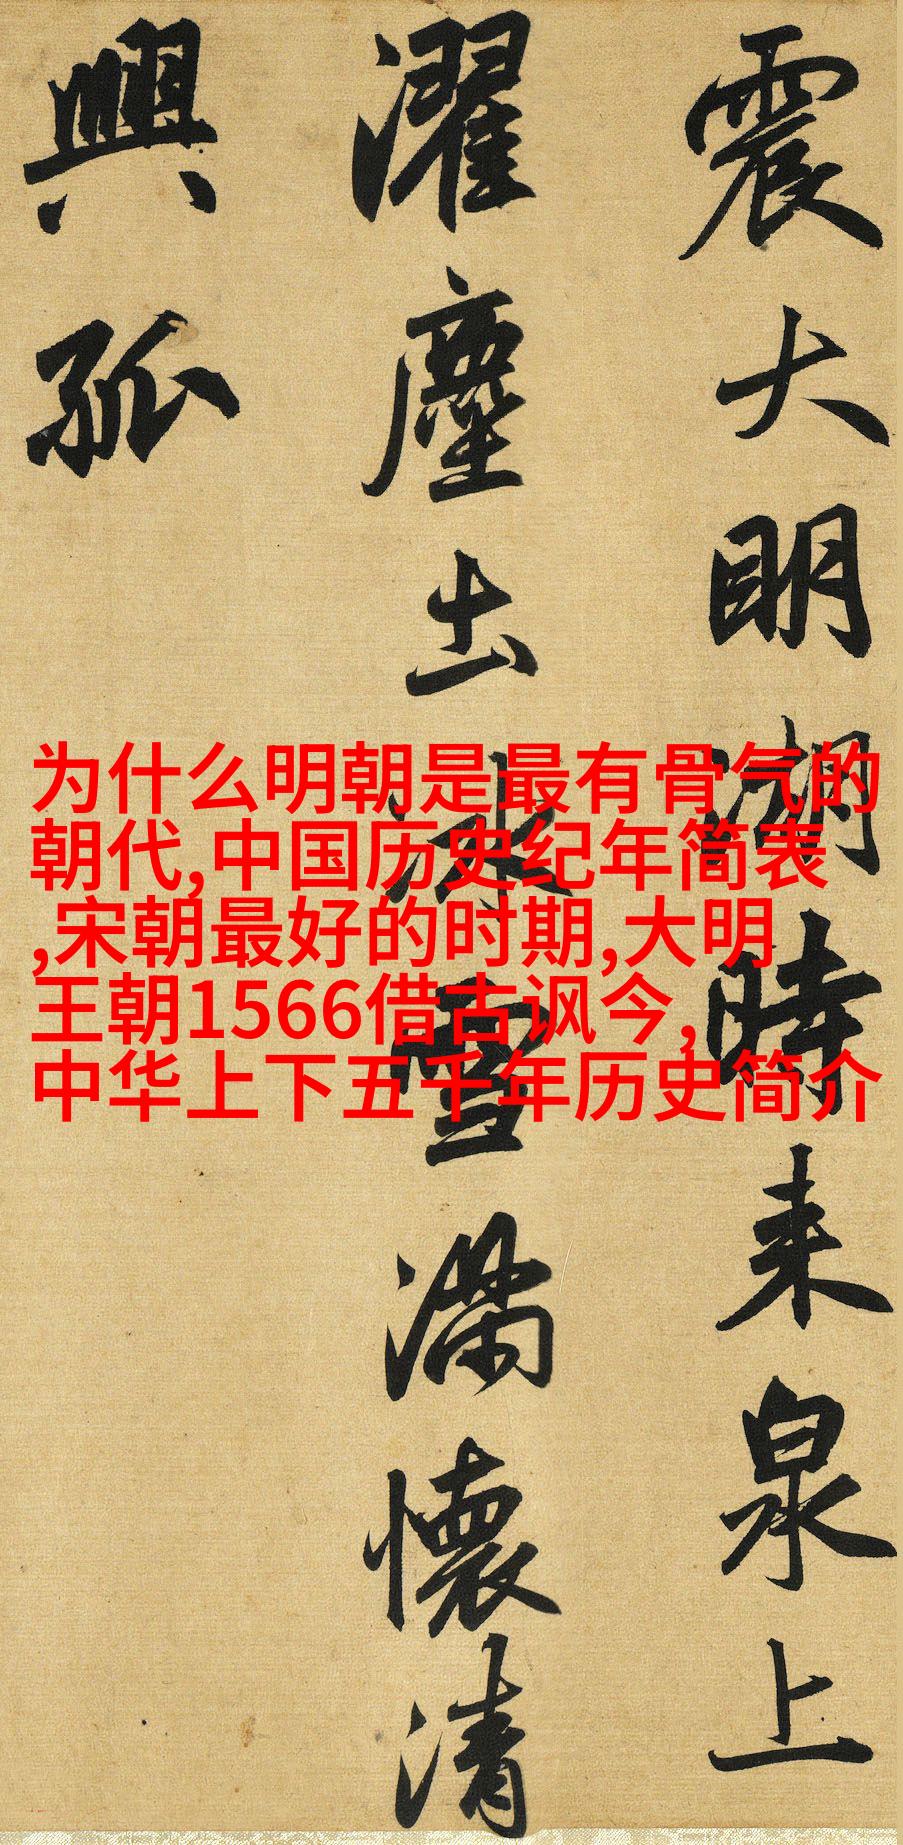 震大明湖時来泉上
濯塵出冰雪滿懷清
興孤
为什么明朝是最有骨气的
朝代,中国历史纪年简表
,宋朝最好的时期,大明
王朝1566借古讽今,
中华上下五千年历史简介